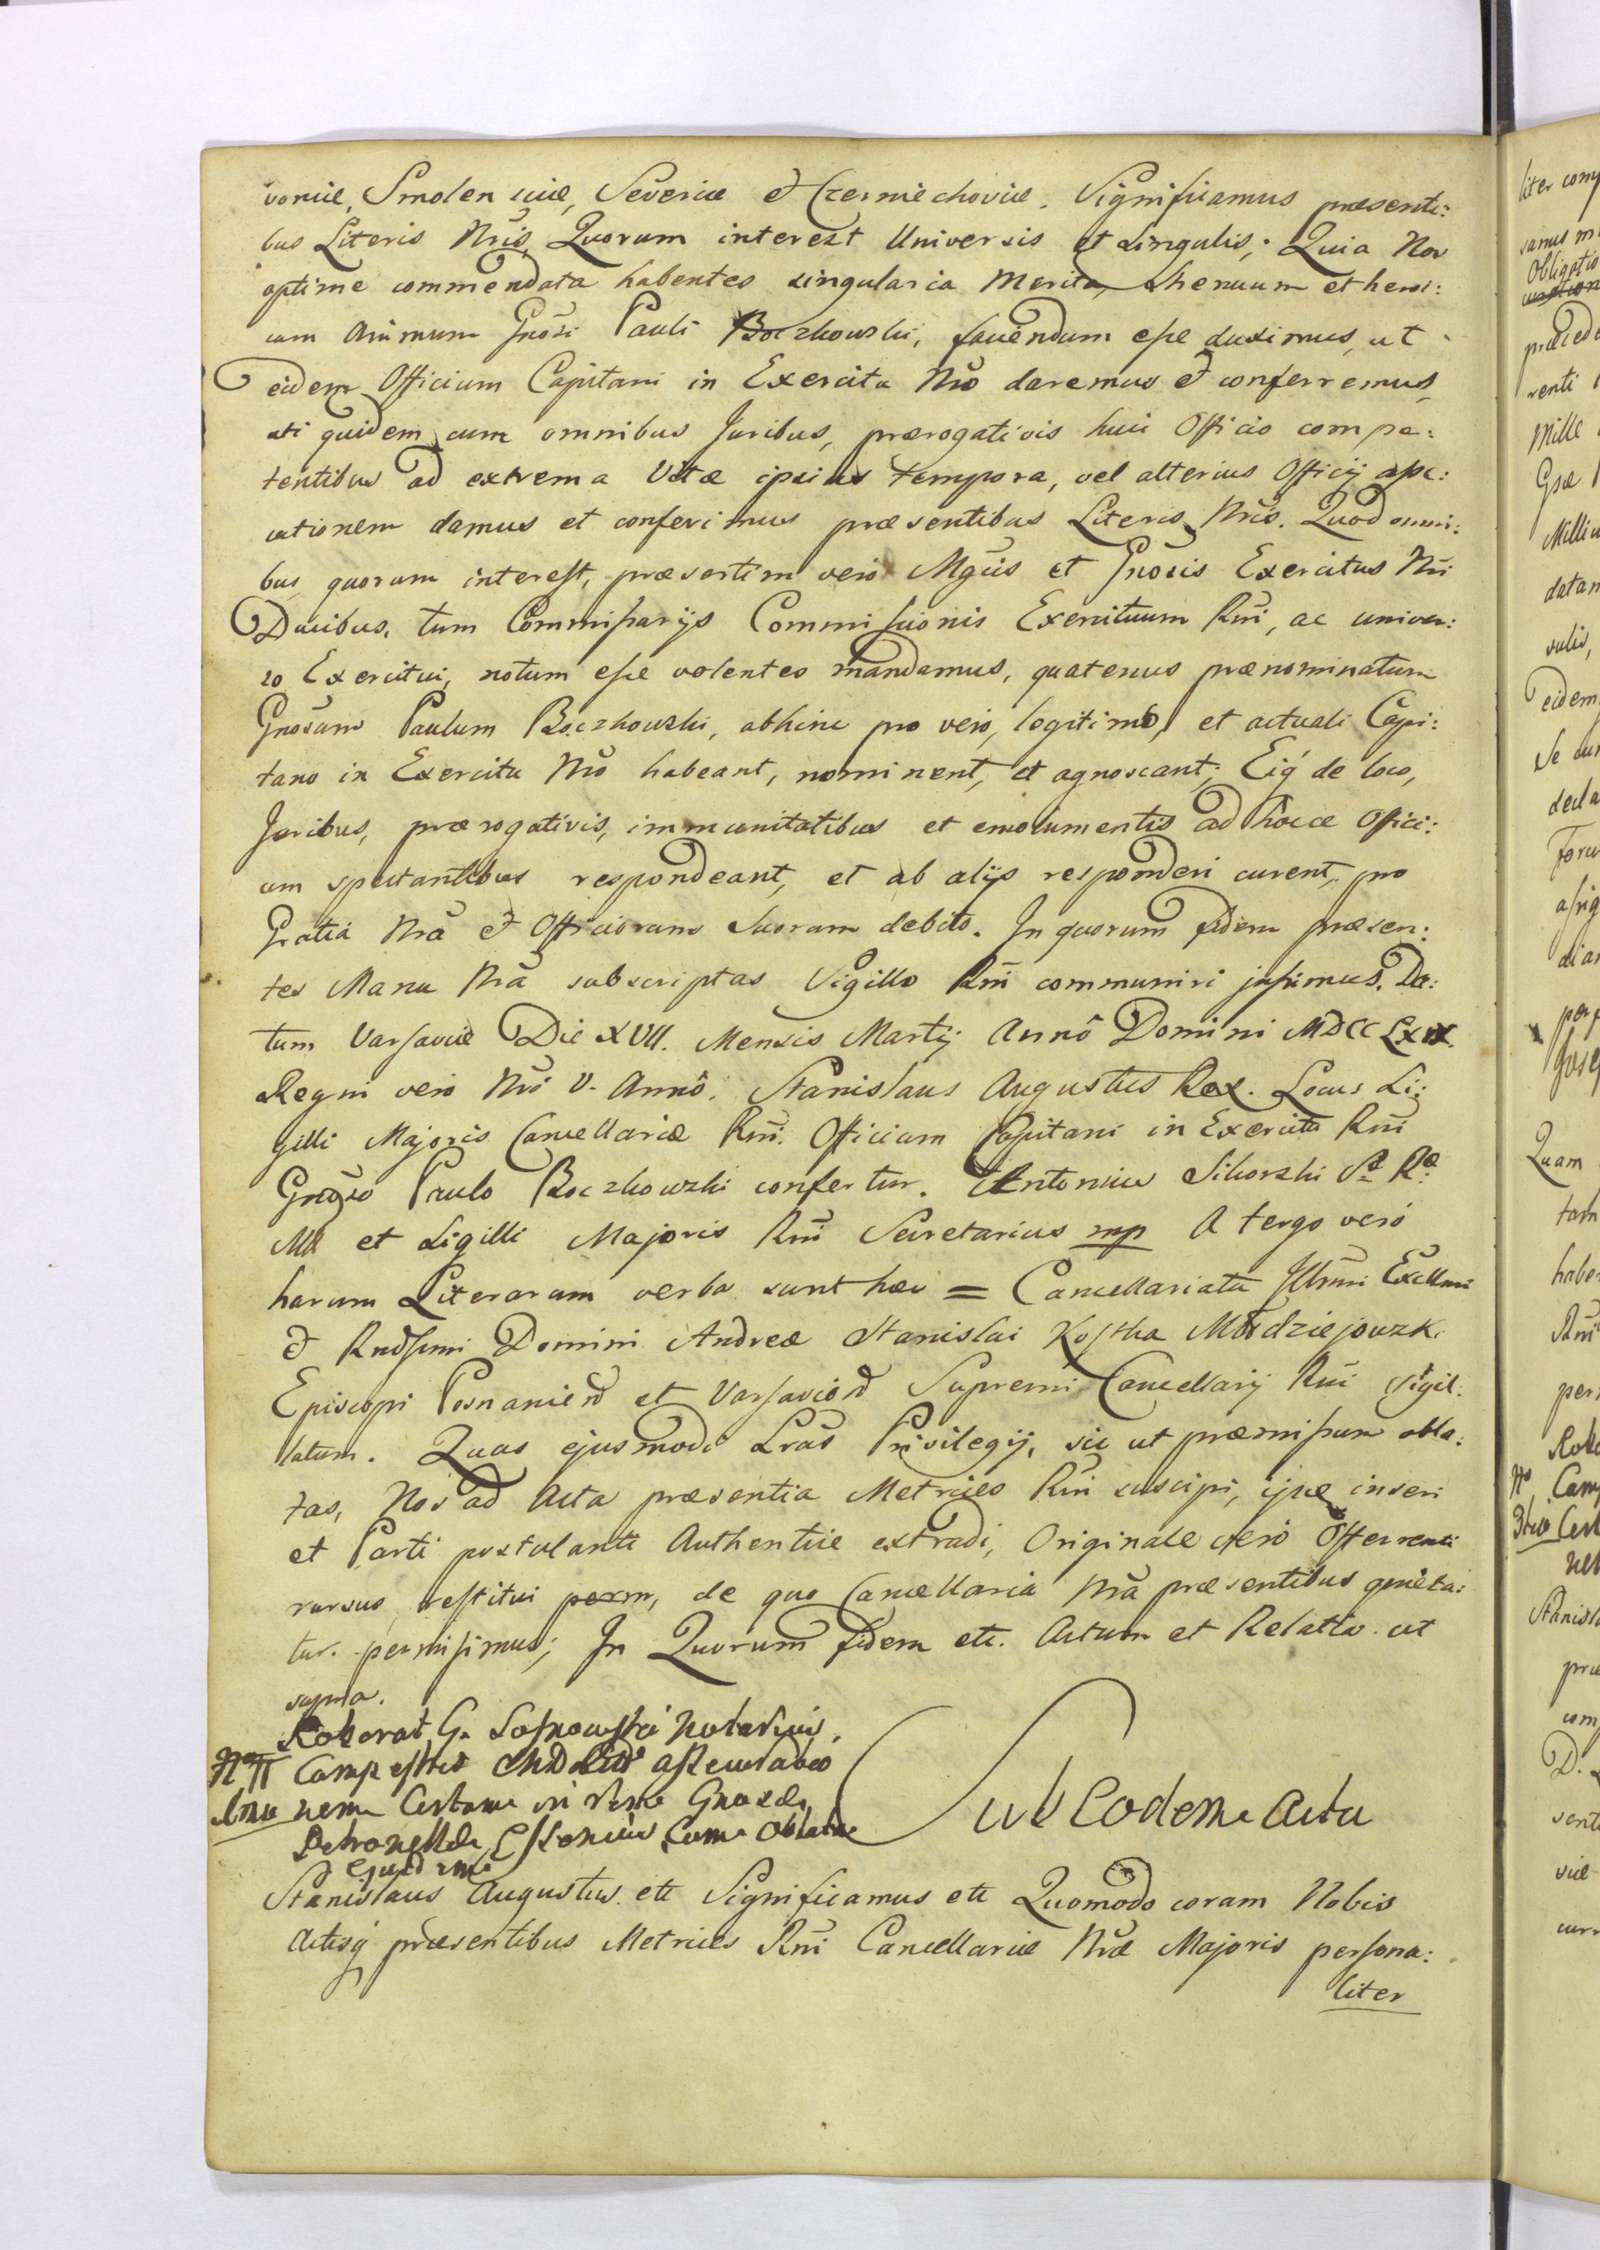 voniæ, Smolensciæ, Severiæ et Czerniechoviæ. Significamus præsenti:
bus Literis Nrĩs, Quorum interest Universis et Singulis; Quia Nos
optime commendata habentes singularia Merita, strenuum et heroi:
cum Animum Gnõsi Pauli Boczkowski, favendum esse duximus, ut
eidem Officium Capitani in Exercitu Nrõ daremus et conferremus,
uti quidem cum omnibus Juribus, prærogativis huic Officio compe:
tentibus ad extrema Vitæ ipsius tempora, vel alterius Officij asse:
cutionem damus et conferimus præsentibus Literis Nrĩs. Quod omni:
bus quorum interest, præsertim vero Mgcis et Gnõsis Exercitus Nrĩ
Ducibus, tum Commissarijs Commissionis Exercituum Rnĩ, ac univer:
so Exercitui, notum esse volentes mandamus, quatenus prænominatum
Gnosum Paulum Boczkowski, abhinc pro vero, legitimo, et actuali Capi:
tano in Exercitu Nrõ habeant, nominent, et agnoscant; Eiq́ de loco,
Juribus, prærogativis, immunitatibus et emolumentis ad hocce Offici:
um spectantibus respondeant, et ab alijs responderi curent, pro
Gratia Nrã et Officiorum Suorum debito. In quorum fidem præsen:
tes Manu Nrã subscriptas Sigillo Rnĩ communiri jussimus. Da:
tum Varsaviæ Die XVII. Mensis Martij Annô Domini MDCCLXIX.
Regni vero Nrĩ V. Annô. Stanislaus Augustus Rex. Locus Si:
gilli Majoris Cancellariæ Rnĩ. Officium Capitani in Exercitu Rnĩ
Gnõso Paulo Boczkowski confertur. Antonius Sikorski Sæ Ræ
Mtt et Sigilli Majoris Rnĩ Secretarius mp A tergo vero
harum Literarum verba sunt hæc = Cancellariatu Illrmi Excllmi
et Rndssimi Domini Andreæ Stanislai Kostka Młodziejowski
Episcopi Posnanien et Varsavien Supremi Cancellarij Rnĩ sigil:
latum. Quas ejusmodi Lrãs Privilegij, sic ut præmissum obla:
tas, Nos ad Acta præsentia Metrices Rnĩ suscipi, ijsq inseri
et Parti postulanti Authentice extradi, Originale vero Offerrenti
rursus restitui perm, de quo Cancellaria Nrã præsentibus quieta:
tur. permisimus; In Quorum fidem etc. Actum et Relatio ut
supra.
Roborat G. Sosnowski Notarius
Campestris MDLitt assecuratio
nem Certam in rem Gnosæ
Petronellæ Essenius Cum Oblatæ
ejusdem
Sub Eodem Actu
Stanislaus Augustus etc Significamus etc Quomodo coram Nobis
Actisq́ præsentibus Metrices Rnĩ Cancellariæ Nræ Majoris persona:
liter